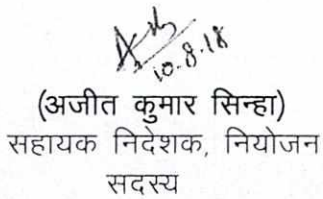 10.8.18
(अजीत कुमार सिन्हा)
सहायक निदेशक, नियोजन
सदस्य